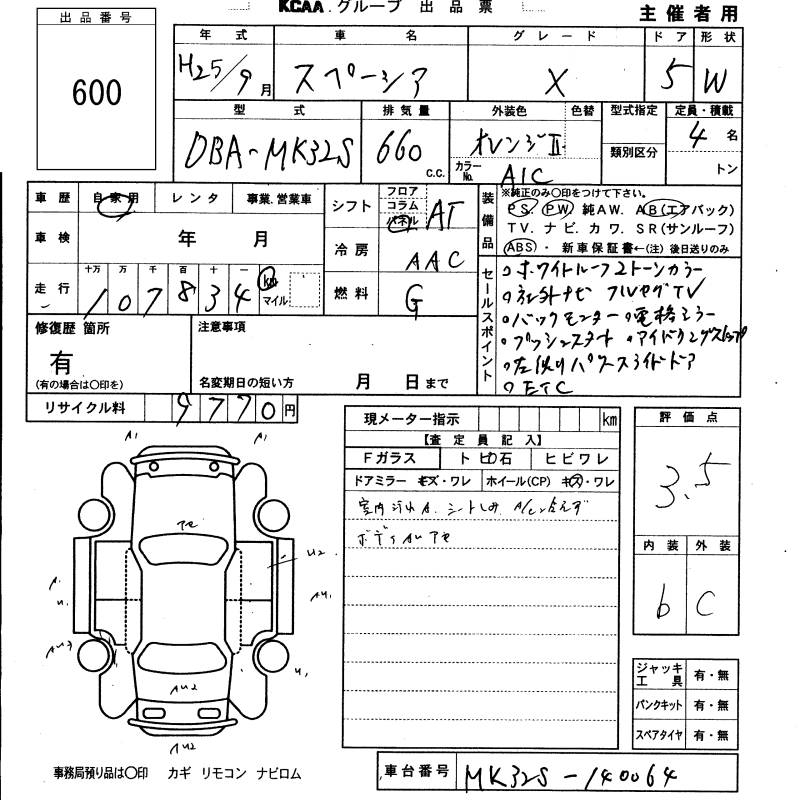 KCAA グループ 出品票
主催者用
出品番号
600
年式 車名 グレード ドア 形状
H25/9月 スペーシア X 5 W
型式 排気量 外装色 色替 型式指定 定員・積載
DBA-MK32S 660 C.C. オレンジII 4名
カラーNo. A1C 類別区分 トン
車歴 自家用 レンタ 事業.営業車
車検 年 月
走行 十万 万 千 百 十 一
107834 km マイル
シフト フロア コラム パネル AT
冷房 AAC
燃料 G
装備品 ※純正のみ○印をつけて下さい。
PS. PW. 純AW. AB(エアバック)
TV. ナビ. カワ. SR(サンルーフ)
ABS・新車保証書←(注) 後日送りのみ
セールスポイント
○ホワイトルーフ2トーンカラー
○社外ナビ フルセグTV
○バックモニター ○電格ミラー
○プッシュスタート ○アイドリングストップ
○左側りパワースライドドア
○ETC
修復歴 箇所
有
(有の場合は○印を)
注意事項
名変期日の短い方 月 日まで
リサイクル料 9770円
現メーター指示 km
【査定員記入】
Fガラス トビ石 ヒビワレ
ドアミラー キズ・ワレ ホイール(CP) キズ・ワレ
室内汚れA. シートしみ.
評価点
3.5
内装 外装
b C
A1 A1
アセ
U2
A.
U.
AU.
AU3
U.
AU2
AU2
ジャッキ工具 有・無
パンクキット 有・無
スペアタイヤ 有・無
事務局預り品は○印 カギ リモコン ナビロム
車台番号 MK32S-140064